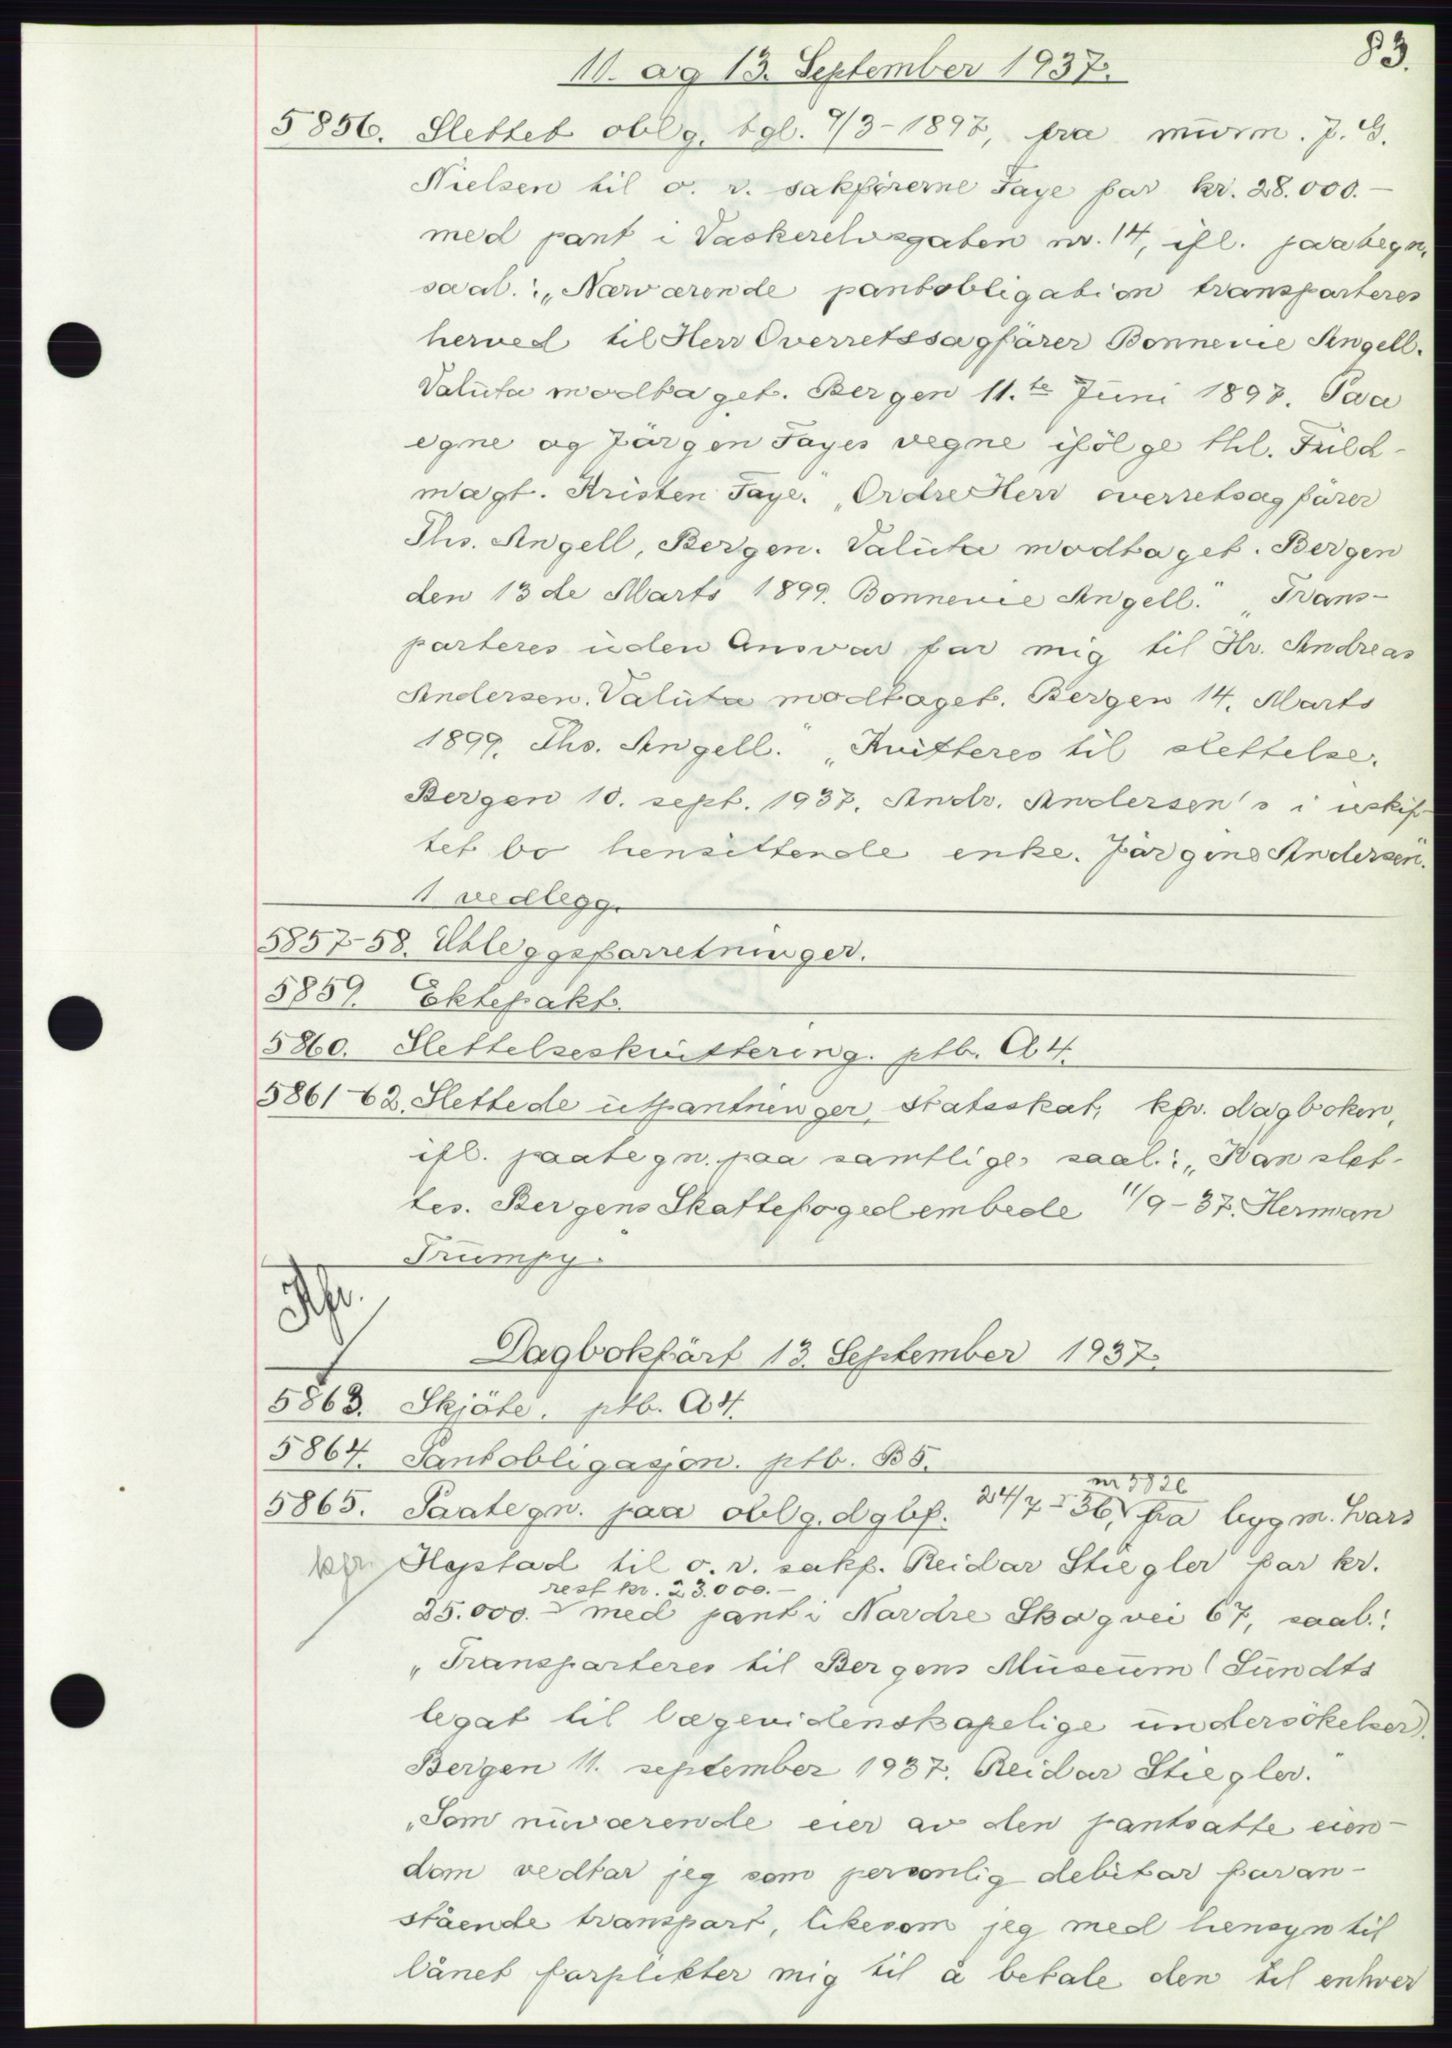 83.
11. og 13. September 1937.
5856. Slettet oblg. tgl. 9/3-1897, fra murm. J. G.
Nielsen til o. r. sakförerne Faye for kr. 28.000.-
med pant i Vaskerelvsgaten nr. 14, ifl. paategn.
saal.: „Nærværende pantobligation transporteres
herved til Herr Overretssagförer Bonnevie Angell.
Valuta modtaget. Bergen 11.te Juni 1897. Paa
egne og Jörgen Fayes vegne ifölge thl. Fuld-
magt. Kristen Faye." „Ordre Herr overretsagförer
Ths. Angell, Bergen. Valuta modtaget. Bergen
den 13de Marts 1899. Bonnevie Angell." „Trans-
porteres uden Ansvar for mig til Hr. Andreas
Andersen. Valuta modtaget. Bergen 14. Marts
1899. Ths. Angell." „Kvitteres til slettelse.
Bergen 10. sept. 1937. Andr. Andersen's i uskif-
tet bo hensittende enke. Jörgine Andersen".
1 vedlegg.
5857-58. Utleggsforretninger.
5859. Ektepakt.
5860. Slettelseskvittering. ptb. A4.
5861-62. Slettede utpantninger, statsskat, kfr. dagboken,
ifl. paategn. paa samtlige saal.: „Kan slet-
tes. Bergens Skattefogedembede 11/9-37. Herman
Trumpy."
Kfr.
Dagbokfört 13. September 1937.
5863. Skjöte. ptb. A4.
5864. Pantobligasjon. ptb. B5.
nr 5826
5865. Paategn. paa oblg. dgbf. 24/7-36, fra bygm. Lars
kfr. Hopstad til o. r. sakf. Reidar Stiegler for kr.
rest kr. 23.000.-
25.000.- med pant i Nordre Skogvei 67, saal.:
„Transporteres til Bergens Museum (Sundts
legat til lægevidenskapelige undersökelser).
Bergen 11. september 1937. Reidar Stiegler."
„Som nuværende eier av den pantsatte eien-
dom vedtar jeg som personlig debitor foran-
stående transport, likesom jeg med hensyn til
lånet forplikter mig til å betale den til enhver